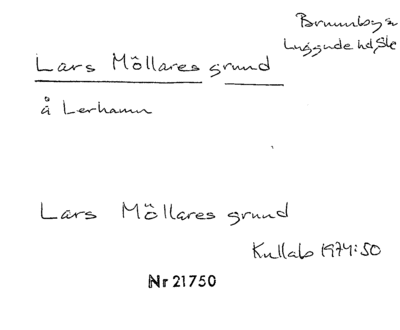 Brunnby sn
Luggude hd, Sk
Lars Möllares grund
å Lerhamn
Lars Möllares grund
Kullab 1974:50
Nr 21750